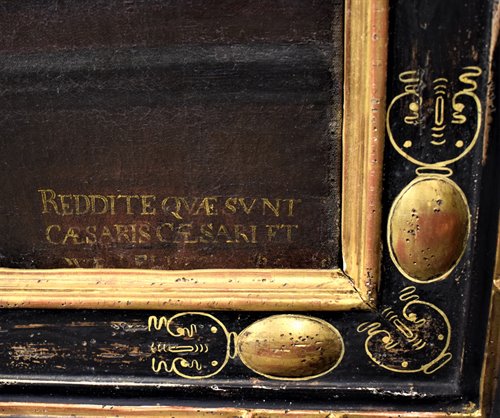 REDDITE QVÆ SVNT
CÆSARIS CÆSARI ET